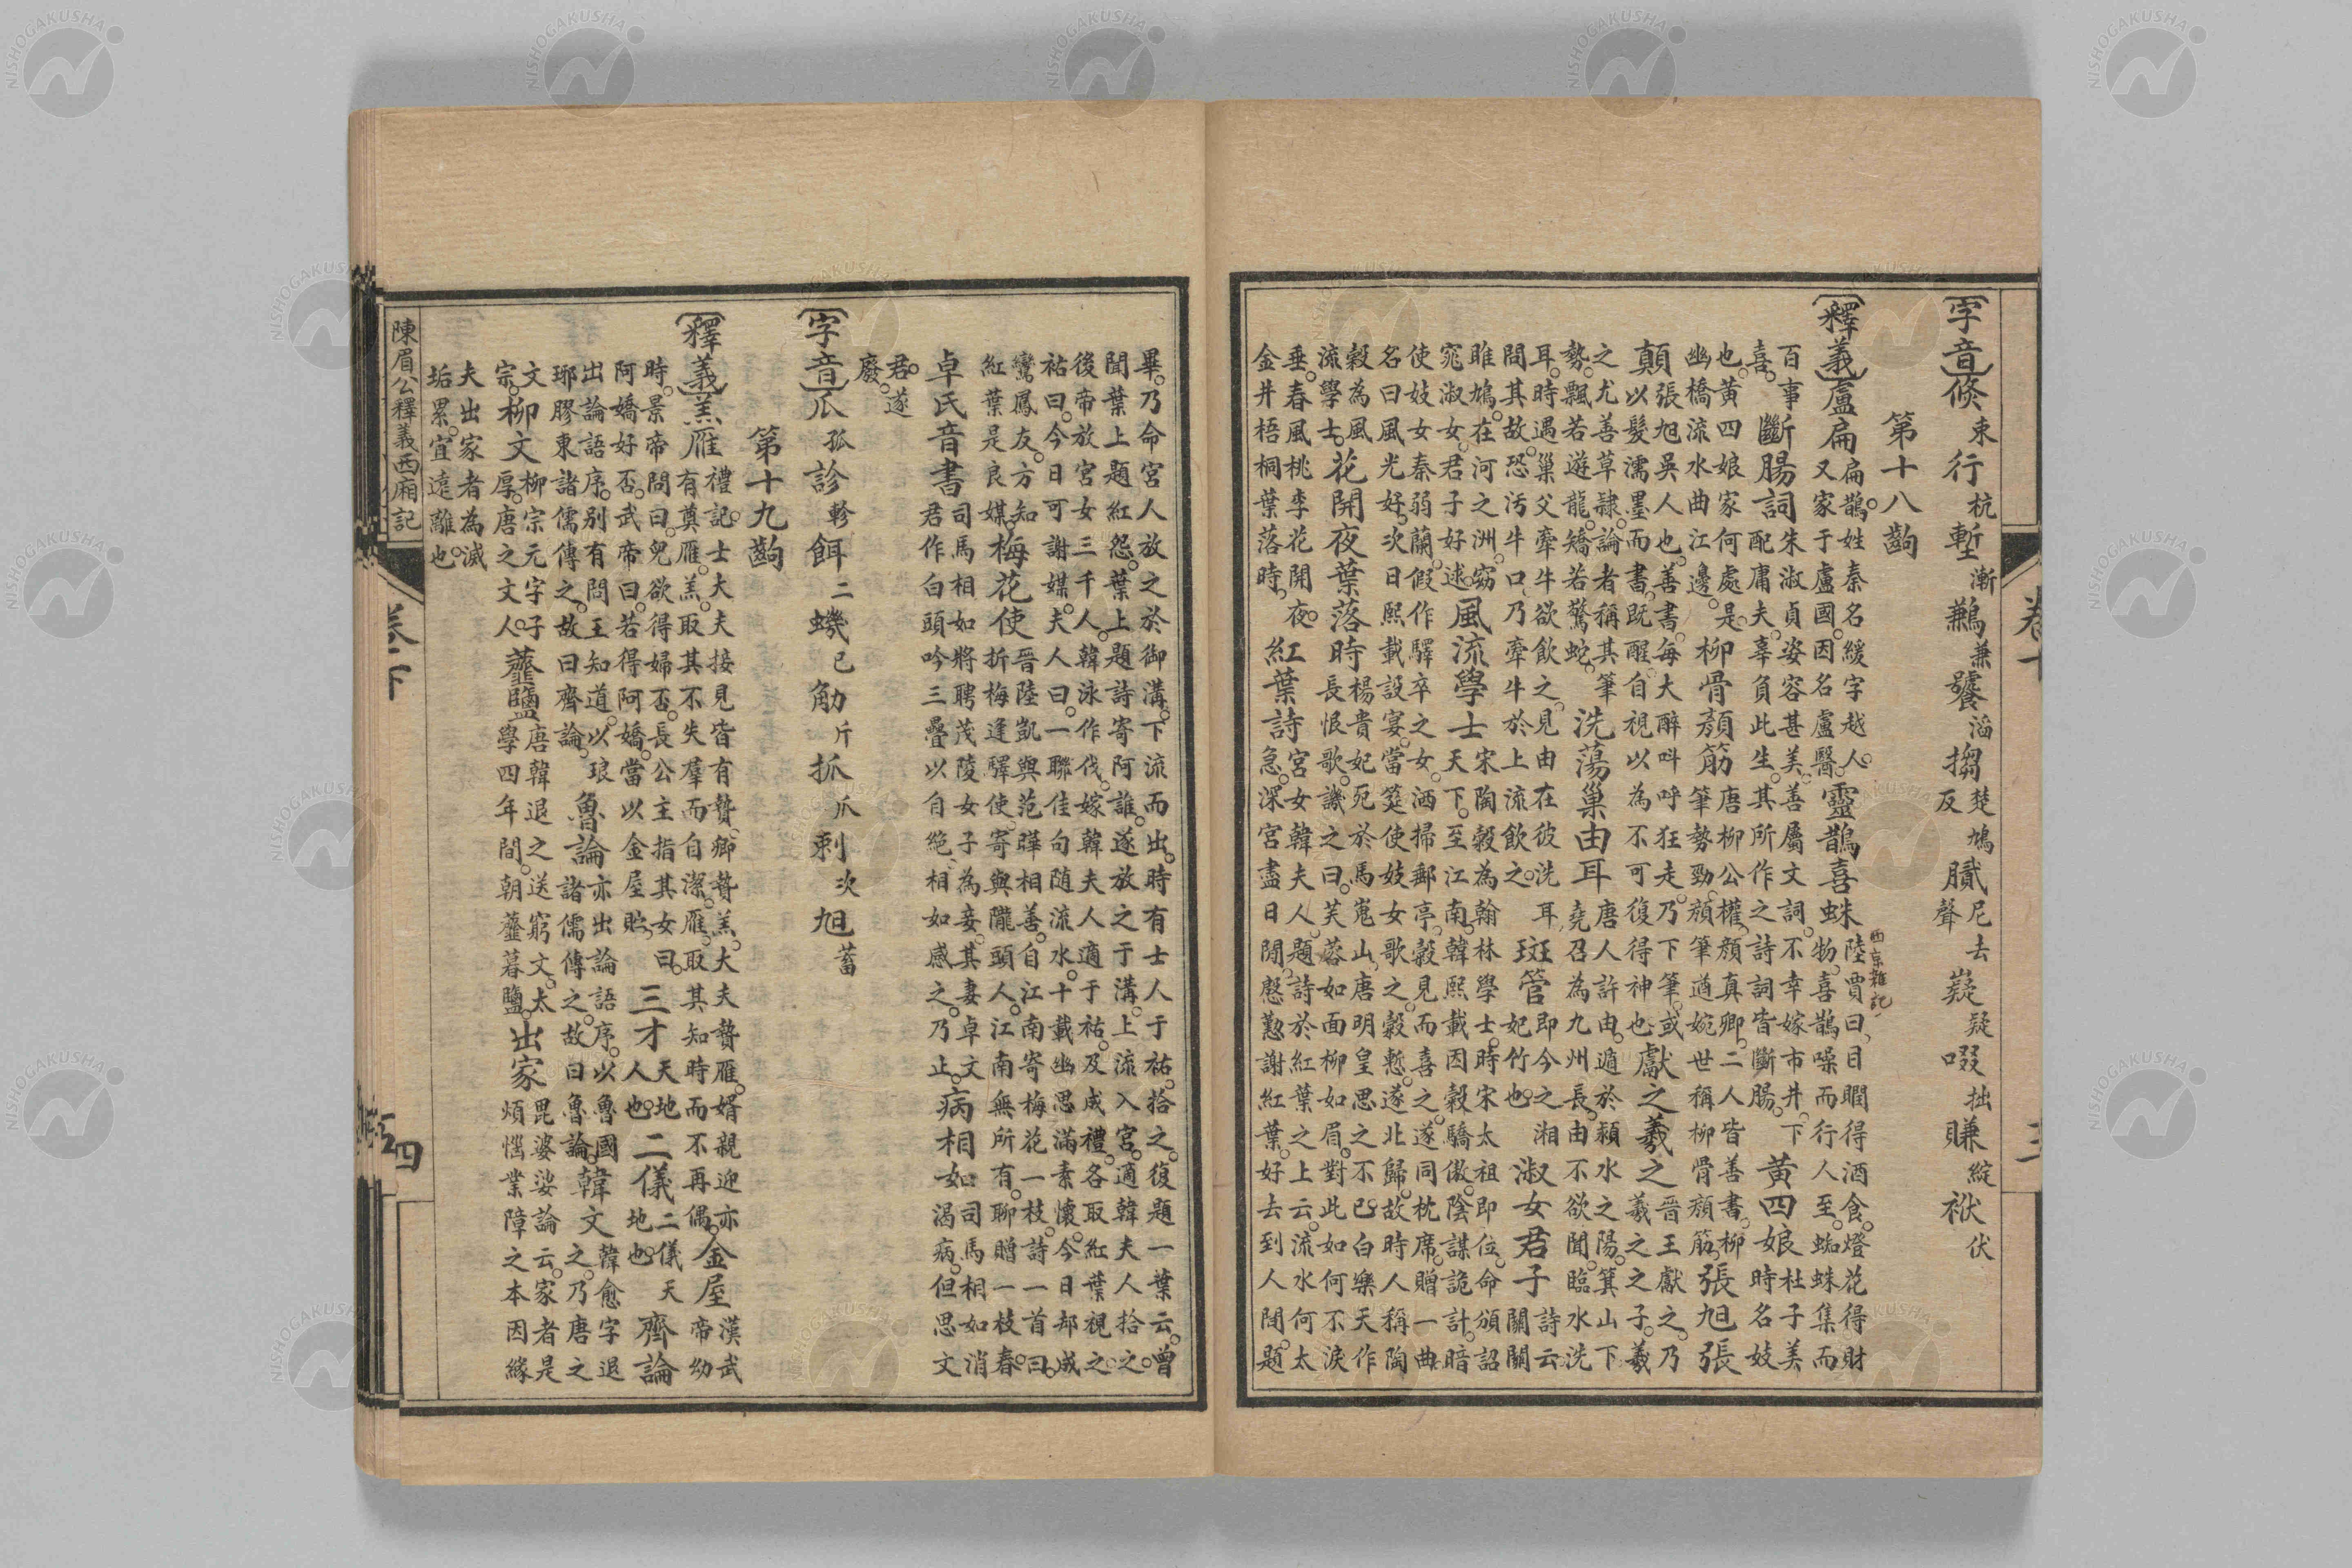 〔字音〕倐東行杭塹漸鶼兼饕滔搊楚鳩反膩尼去聲嶷疑啜拙賺綻袱伏
第十八齣
西京雜記
〔釋義〕盧扁
扁鵲。姓秦名緩字越人。
又家于盧國。因名盧醫。
靈鵲喜蛛
陸賈曰、目瞤得酒食。燈花得財
物、喜鵲噪而行人至。蜘蛛集而
百事
喜。
斷腸詞
朱淑貞姿容甚美、善屬文詞。不幸嫁市井、下
配庸夫。辜負此生。其所作之詩詞皆斷腸。
黃四娘
杜子美
時名妓
也。黃四娘家何處是。
幽橋流水曲江邊。
柳骨顏筋
唐柳公權、顏真卿、二人皆善書、柳
筆勢勁、顏筆遒婉世稱柳骨顏筋。
張旭張
顛
張旭吳人也。善書。每大醉呌呼狂走。乃下筆。或
以髮濡墨而書。既醒自視以為不可復得神也
獻之羲之
晉王獻之。乃
羲之之子。羲
之尤善草隸。論者稱其筆
勢。飄若遊龍。矯若驚蛇。
洗蕩巢由耳
唐人許由。遁於潁水之陽。箕山下
堯召為九州長。由不欲聞。臨水洗
耳。時遇巢父牽牛欲飲之、見由在彼洗耳、
問其故。恐汚牛口、乃牽牛於上流飲之。
斑管
即今之湘
妃竹也。
淑女君子
詩云
關關
雎鳩。在河之洲。窈
窕淑女。君子好逑。
風流學士
宋陶穀為翰林學士。時宋太祖即位。命頒詔
天下。至江南、韓熙載因穀驕傲。陰謀詭計。暗
使妓女秦弱蘭、假作驛卒之女。洒掃郵亭。穀見而喜之。遂同枕席。贈一曲
名曰風光好。次日熙載設宴。當筵使妓女歌之。穀慙。遂北歸。故時人稱陶
穀為風
流學士。
花開夜葉落時
楊貴妃死於馬嵬山、唐明皇思之不已。白樂天作
長恨歌。譏之曰。芙蓉如面柳如眉。對此如何不淚
垂。春風桃李花開夜。
金井梧桐葉落時。
紅葉詩
宮女韓夫人題詩於紅葉之上云。流水何太
急。深宮盡日閒。慇懃謝紅葉。好去到人間。題
卷下
三
畢。乃命宮人放之於御溝。下流而出。時有士人于祐。拾之。復題一葉云。曾
聞葉上題紅怨。葉上題詩寄阿誰。遂放之于溝上流入宮。適韓夫人拾之。
後帝放宮女三千人。韓泳作伐。嫁韓夫人適于祐。及成禮。各取紅葉視之。
祐曰。今日可謝媒。夫人曰。一聯佳句随流水。十載幽思滿素懷。今日却成
鸞鳳友。方知
紅葉是良媒。
梅花使
晉陸凱與范曄相善。自江南寄梅花一枝。詩一首曰。
折梅逢驛使。寄與隴頭人。江南無所有。聊贈一枝春。
卓氏音書
司馬相如將聘茂陵女子為妾。其妻卓文
君作白頭吟三疊以自絕、相如感之。乃止。
病相如
司馬相如消
渴病。但思文
君。遂
廢。
〔字音〕瓜孤診軫餌二蟣已觔斤抓爪刺次旭蓄
第十九齣
〔釋義〕羔雁
禮記。士大夫接見皆有贄。卿贄羔。大夫贄雁。婿親迎亦
有奠雁。羔。取其不失羣而自潔。雁。取其知時而不再偶。
金屋
漢武
帝幼
時。景帝問曰。兒欲得婦否。長公主指其女曰。
阿嬌好否。武帝曰。若得阿嬌。當以金屋貯。
三才
天地
人也。
二儀
二儀天
地也。
齊論
出論語序。別有問王知道。以琅
琊膠東諸儒傳之。故曰齊論。
魯論
亦出論語序。以魯國
諸儒傳之。故曰魯論。
韓文
韓愈字退
之。乃唐之
文
宗。
柳文
柳宗元字子
厚。唐之文人。
虀鹽
唐韓退之送窮文。太
學四年間。朝虀暮鹽。
出家
毘婆娑論云。家者是
煩惱業障之本因緣
夫出家者為滅
垢累。宜遠離也。
陳眉公釋義西廂記
卷下
四